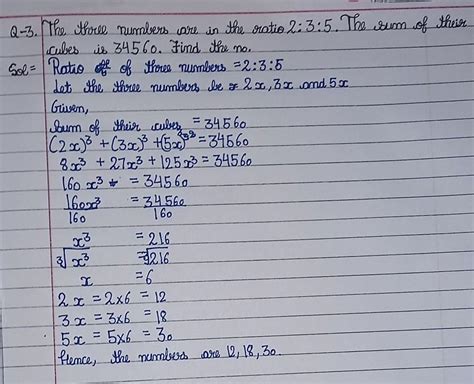 Q-3. The three numbers are in the ratio 2:3:5. The sum of their
cubes is 34560. Find the no.
Sol = Ratio of three numbers = 2:3:5
Let the three numbers be 2x, 3x and 5x
Given,
Sum of their cubes = 34560
(2x)³ + (3x)³ + (5x)³ = 34560
8x³ + 27x³ + 125x³ = 34560
160x³ = 34560
160x³ = 34560
160 160
x³ = 216
∛x³ = ∛216
x = 6
2x = 2×6 = 12
3x = 3×6 = 18
5x = 5×6 = 30
Hence, the numbers are 12, 18, 30.